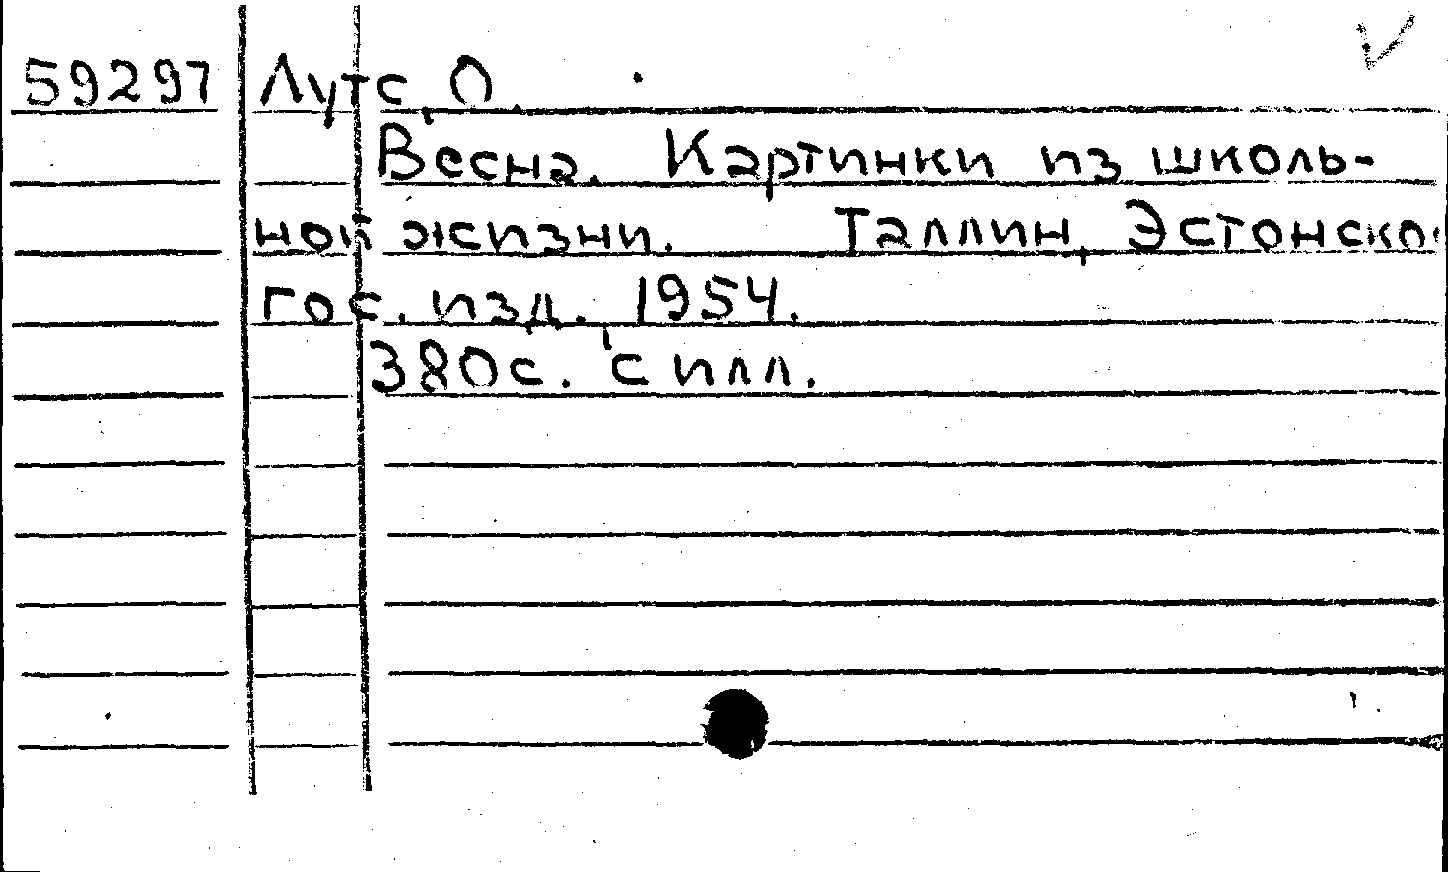 59297 Лутс, О.
Весна. Картинки из школь-
ной жизни. Таллин, Эстонско
гос. изд. 1954.
380с. с илл.